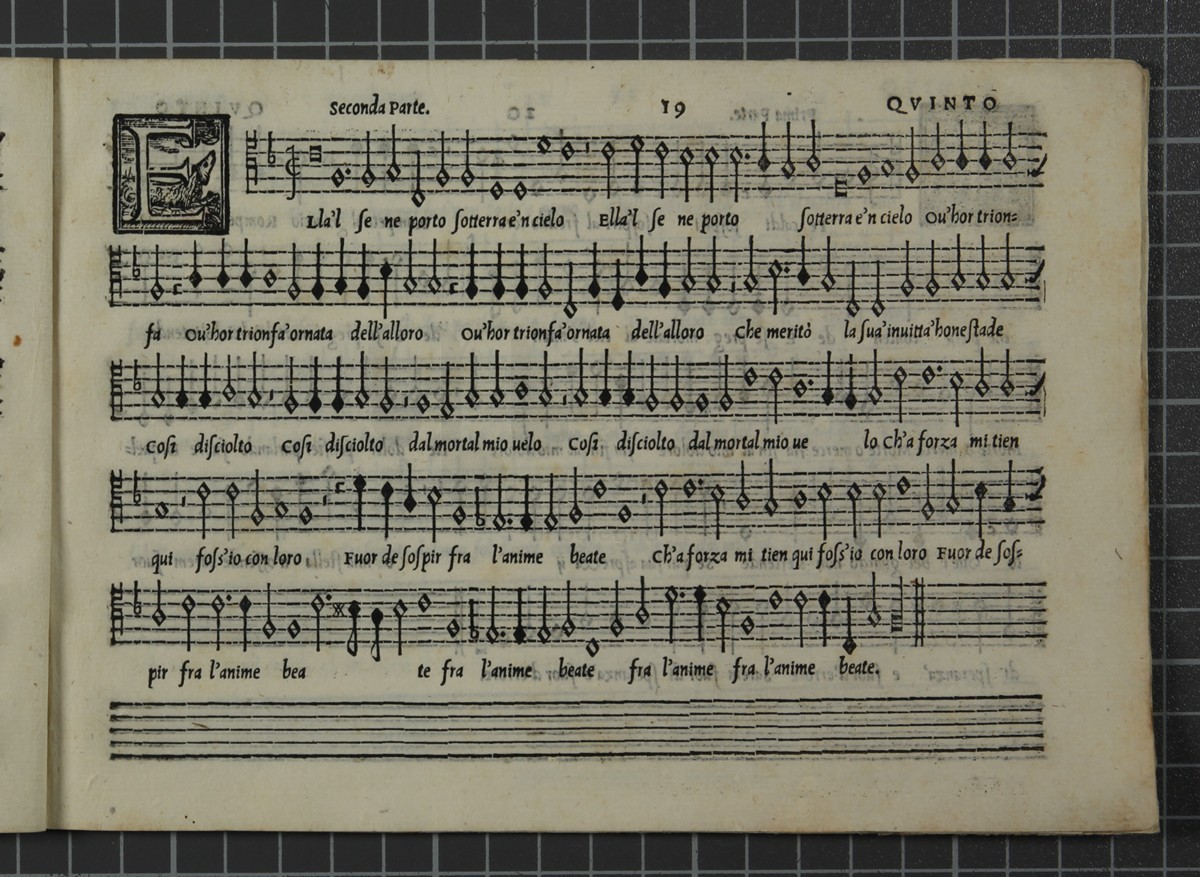 Seconda Parte. 19 QVINTO
ELla'l se ne porto sotterra e'n cielo Ella'l se ne porto sotterra e'n cielo Ou'hor trion=
fa Ou'hor trionfa'ornata dell'alloro Ou'hor trionfa'ornata dell'alloro Che meritò la sua'inuitta'honestade
Cosi disciolto Cosi disciolto dal mortal mio uelo Cosi disciolto dal mortal mio ue lo Ch'a forza mi tien
qui foss'io con loro Fuor de sospir fra l'anime beate Ch'a forza mi tien qui foss'io con loro Fuor de sos=
pir fra l'anime bea te fra l'anime beate fra l'anime fra l'anime beate.